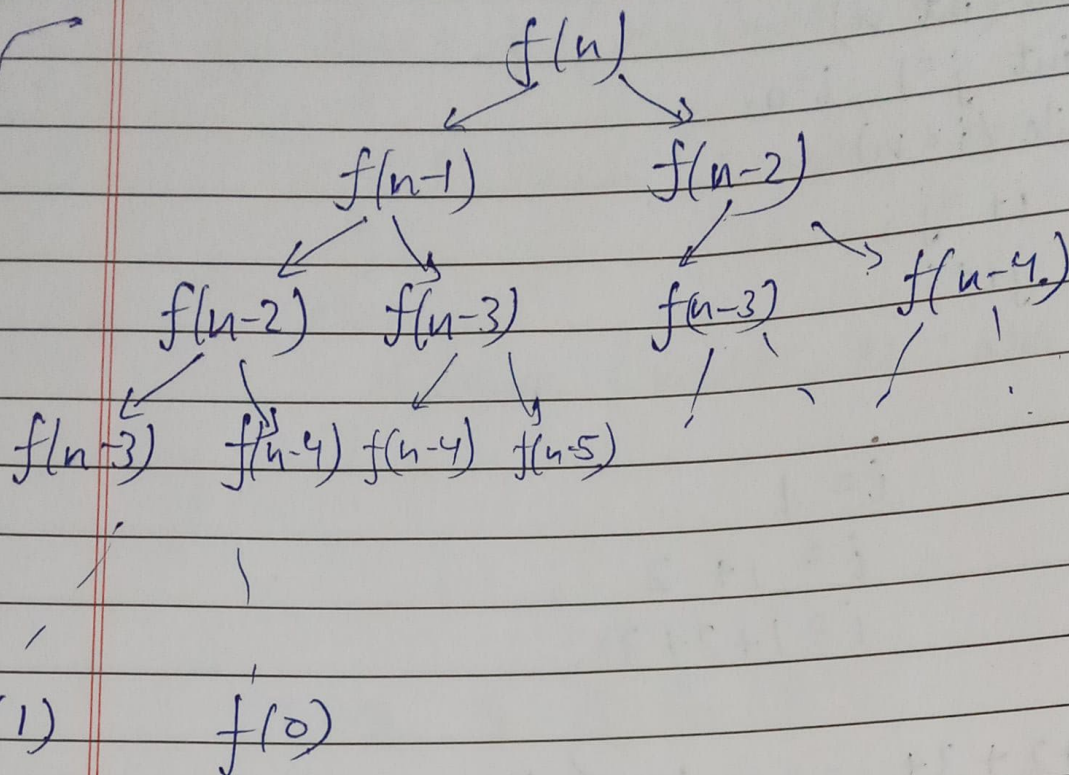 f(n)
f(n-1) f(n-2)
f(n-2) f(n-3) f(n-3) f(n-4)
f(n-3) f(n-4) f(n-4) f(n-5)
(1) f(0)